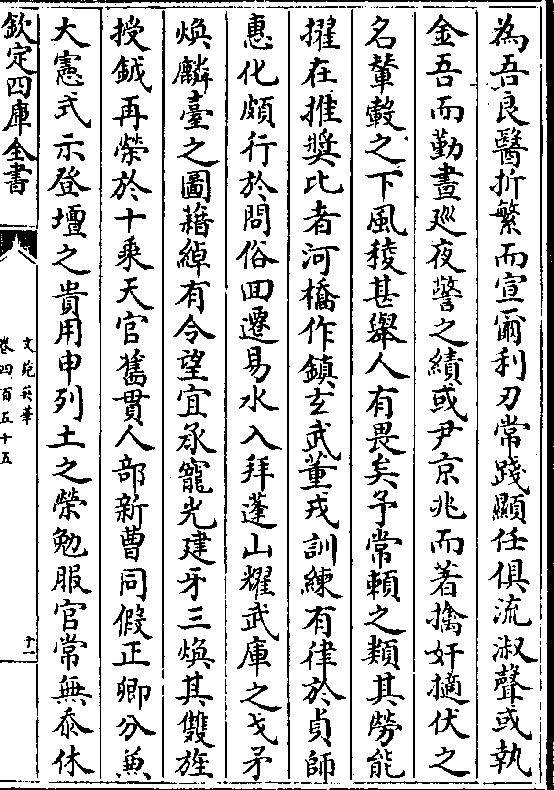 為吾良醫折繁而宣爾利刃常踐顯任俱流淑聲或執
金吾而勤晝廵夜警之績或尹京兆而著擒奸摘伏之
名輦轂之下風稜甚舉人有畏矣予常賴之類其勞能
擢在推獎比者河橋作鎮玄武董戎訓練有律於貞師
惠化頗行於問俗回遷易水入拜蓬山耀武庫之戈矛
煥麟臺之圖籍綽有令望宜承寵光建牙三煥其雙旌
授鉞再榮於十乘天官舊貫人部新曹同假正卿分兼
大憲式示登壇之貴用申列土之榮勉服官常無忝休
欽定四庫全書
文苑英華
卷四百五十五
十一